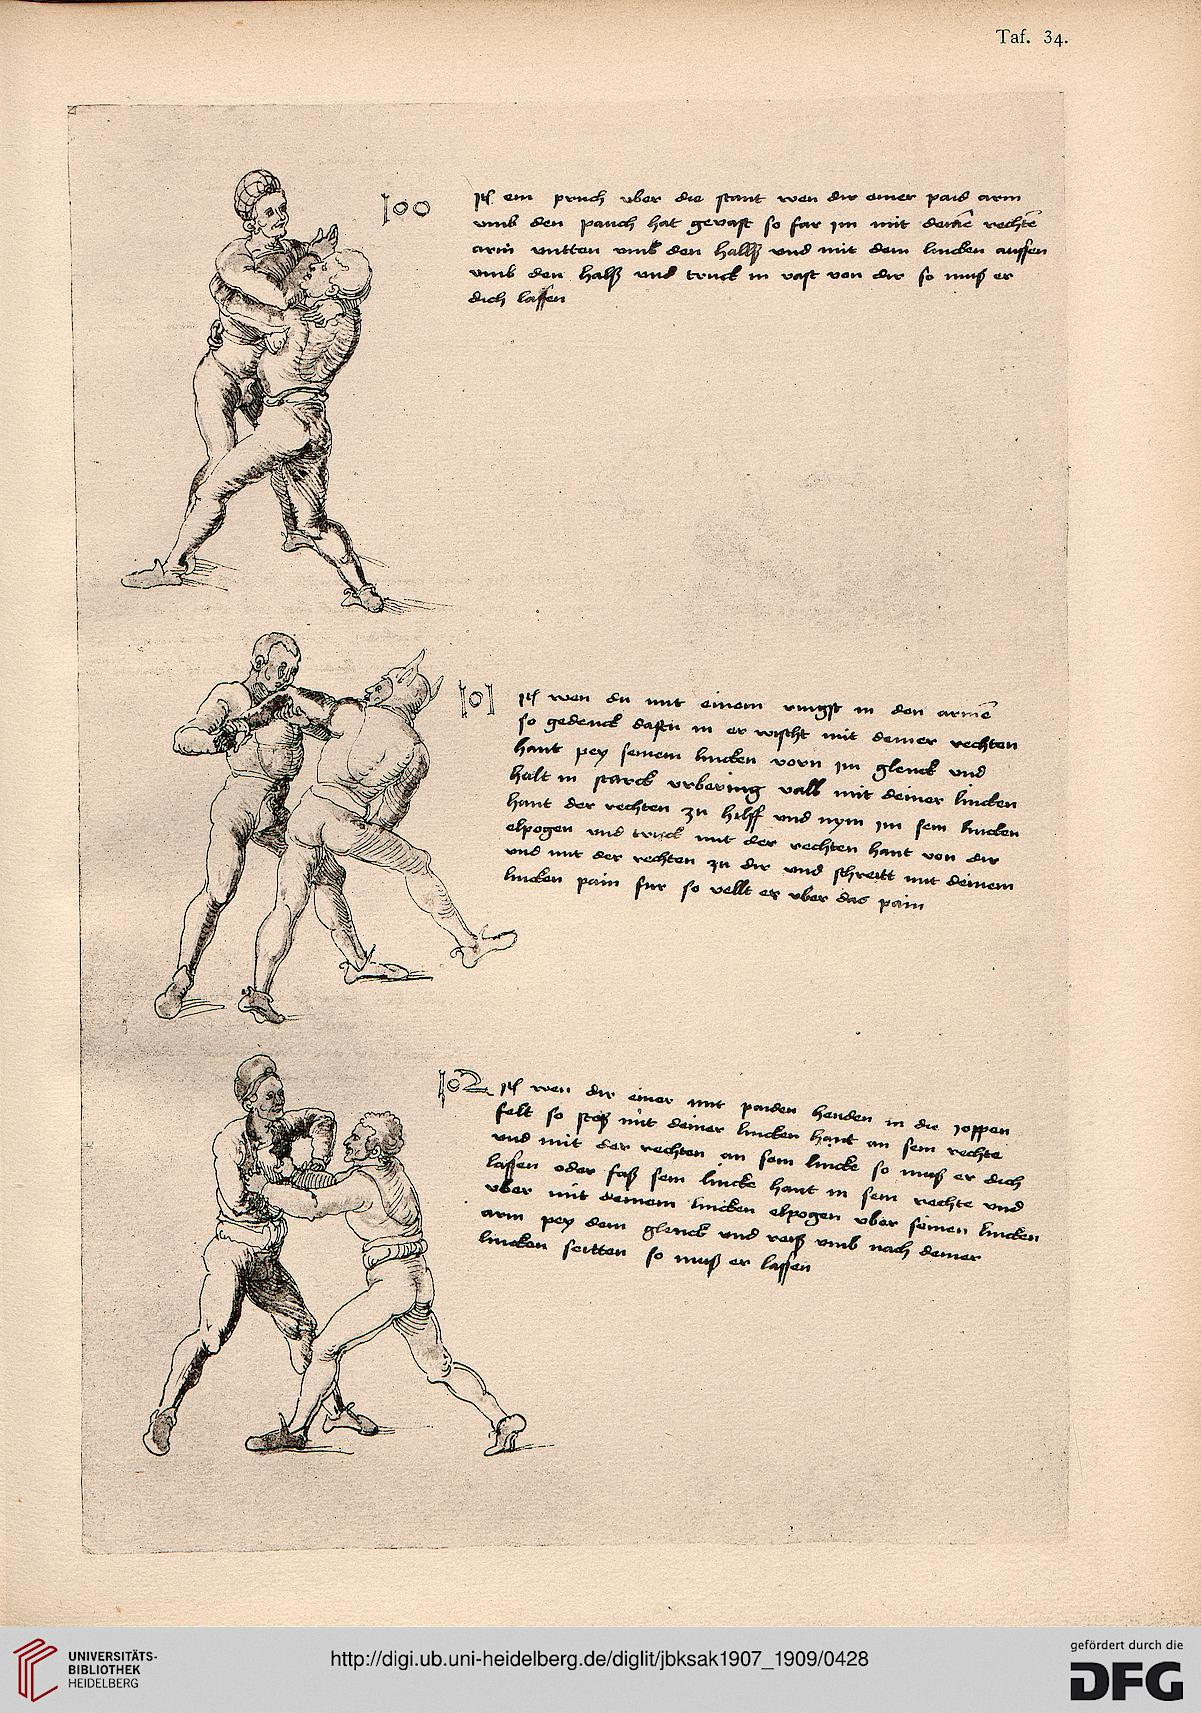 Taf. 34.
100
Itl ein pruch vber die stant wen dir einer paid arm
vmb den pauch hat gevast so far im mit deinē rechtē
arm vntten vmb den hallß vnd mit dem lincken aussen
vmb den halß vnd truck in vast von dir so muß er
dich lassen
101
Itl wen du mit einem ringst in den armē
so gedenck dastu in er wischt mit deiner rechten
hant pey seinem lincken vorn im glenck vnd
halt in starck vrbering vall mit deiner lincken
hant der rechten zu hilff vnd nym im sein lincken
elpogen vnd truck mit der rechten hant von dir
vnd mit der rechten zu dir vnd schreitt mit deinem
lincken pain fur so vellt er vber das pain
102
Itl wen dir einer mit paiden henden in die joppen
felt so stoß mit deiner lincken hant an sein rechte
vnd mit der rechten an sein lincke so muß er dich
lassen oder faß sein lincke hant in sein rechte vnd
vber mit deinem lincken elpogen vber seinen lincken
arm pey dem glenck vnd reiß vmb nach deiner
lincken seitten so muß er lassen
UNIVERSITÄTS-
BIBLIOTHEK
HEIDELBERG
http://digi.ub.uni-heidelberg.de/diglit/jbksak1907_1909/0428
gefördert durch die
DFG